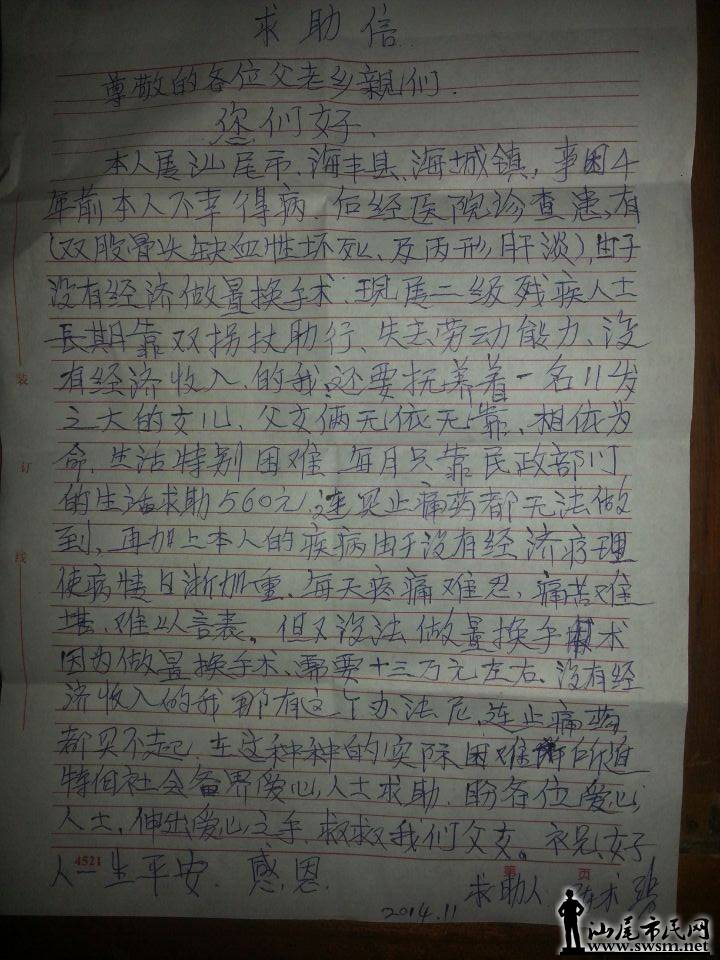 求助信
尊敬的各位父老乡親们.
您们好、
本人属汕尾市、海丰县、海城镇，事因4
年前本人不幸得病、后经医院珍查患有
(双股骨头缺血性坏死、及丙形肝淡)，由于
没有经济做置换手术、現属二级残疾人士
長期靠双拐扙助行、失去劳动能力、没
有经济收入、的我、还要抚养着一名11岁
之大的女儿、父女俩无依无靠、相依为
命、生活特别困难、每月只靠民政部门
的生活求助560元，连买止痛药都无法做
到，再加上本人的疾病由于没有经济疗理
使病情日渐加重、每天疼痛难忍、痛苦难
堪、难以言表。但又没法做置换手术
因为做置换手术、需要十三万元左右、没有经
济收入的我那有这个办法尼，连止痛药
都买不起、在这种种的实际困难所迫
特向社会各界爱心人士求助、盼各位爱心
人士，伸出爱心之手、救救我们父女。祝、好
人一生平安、感恩
求助人
2014.11
4521
第 页
装
订
线
汕尾市民网
www.swsm.net